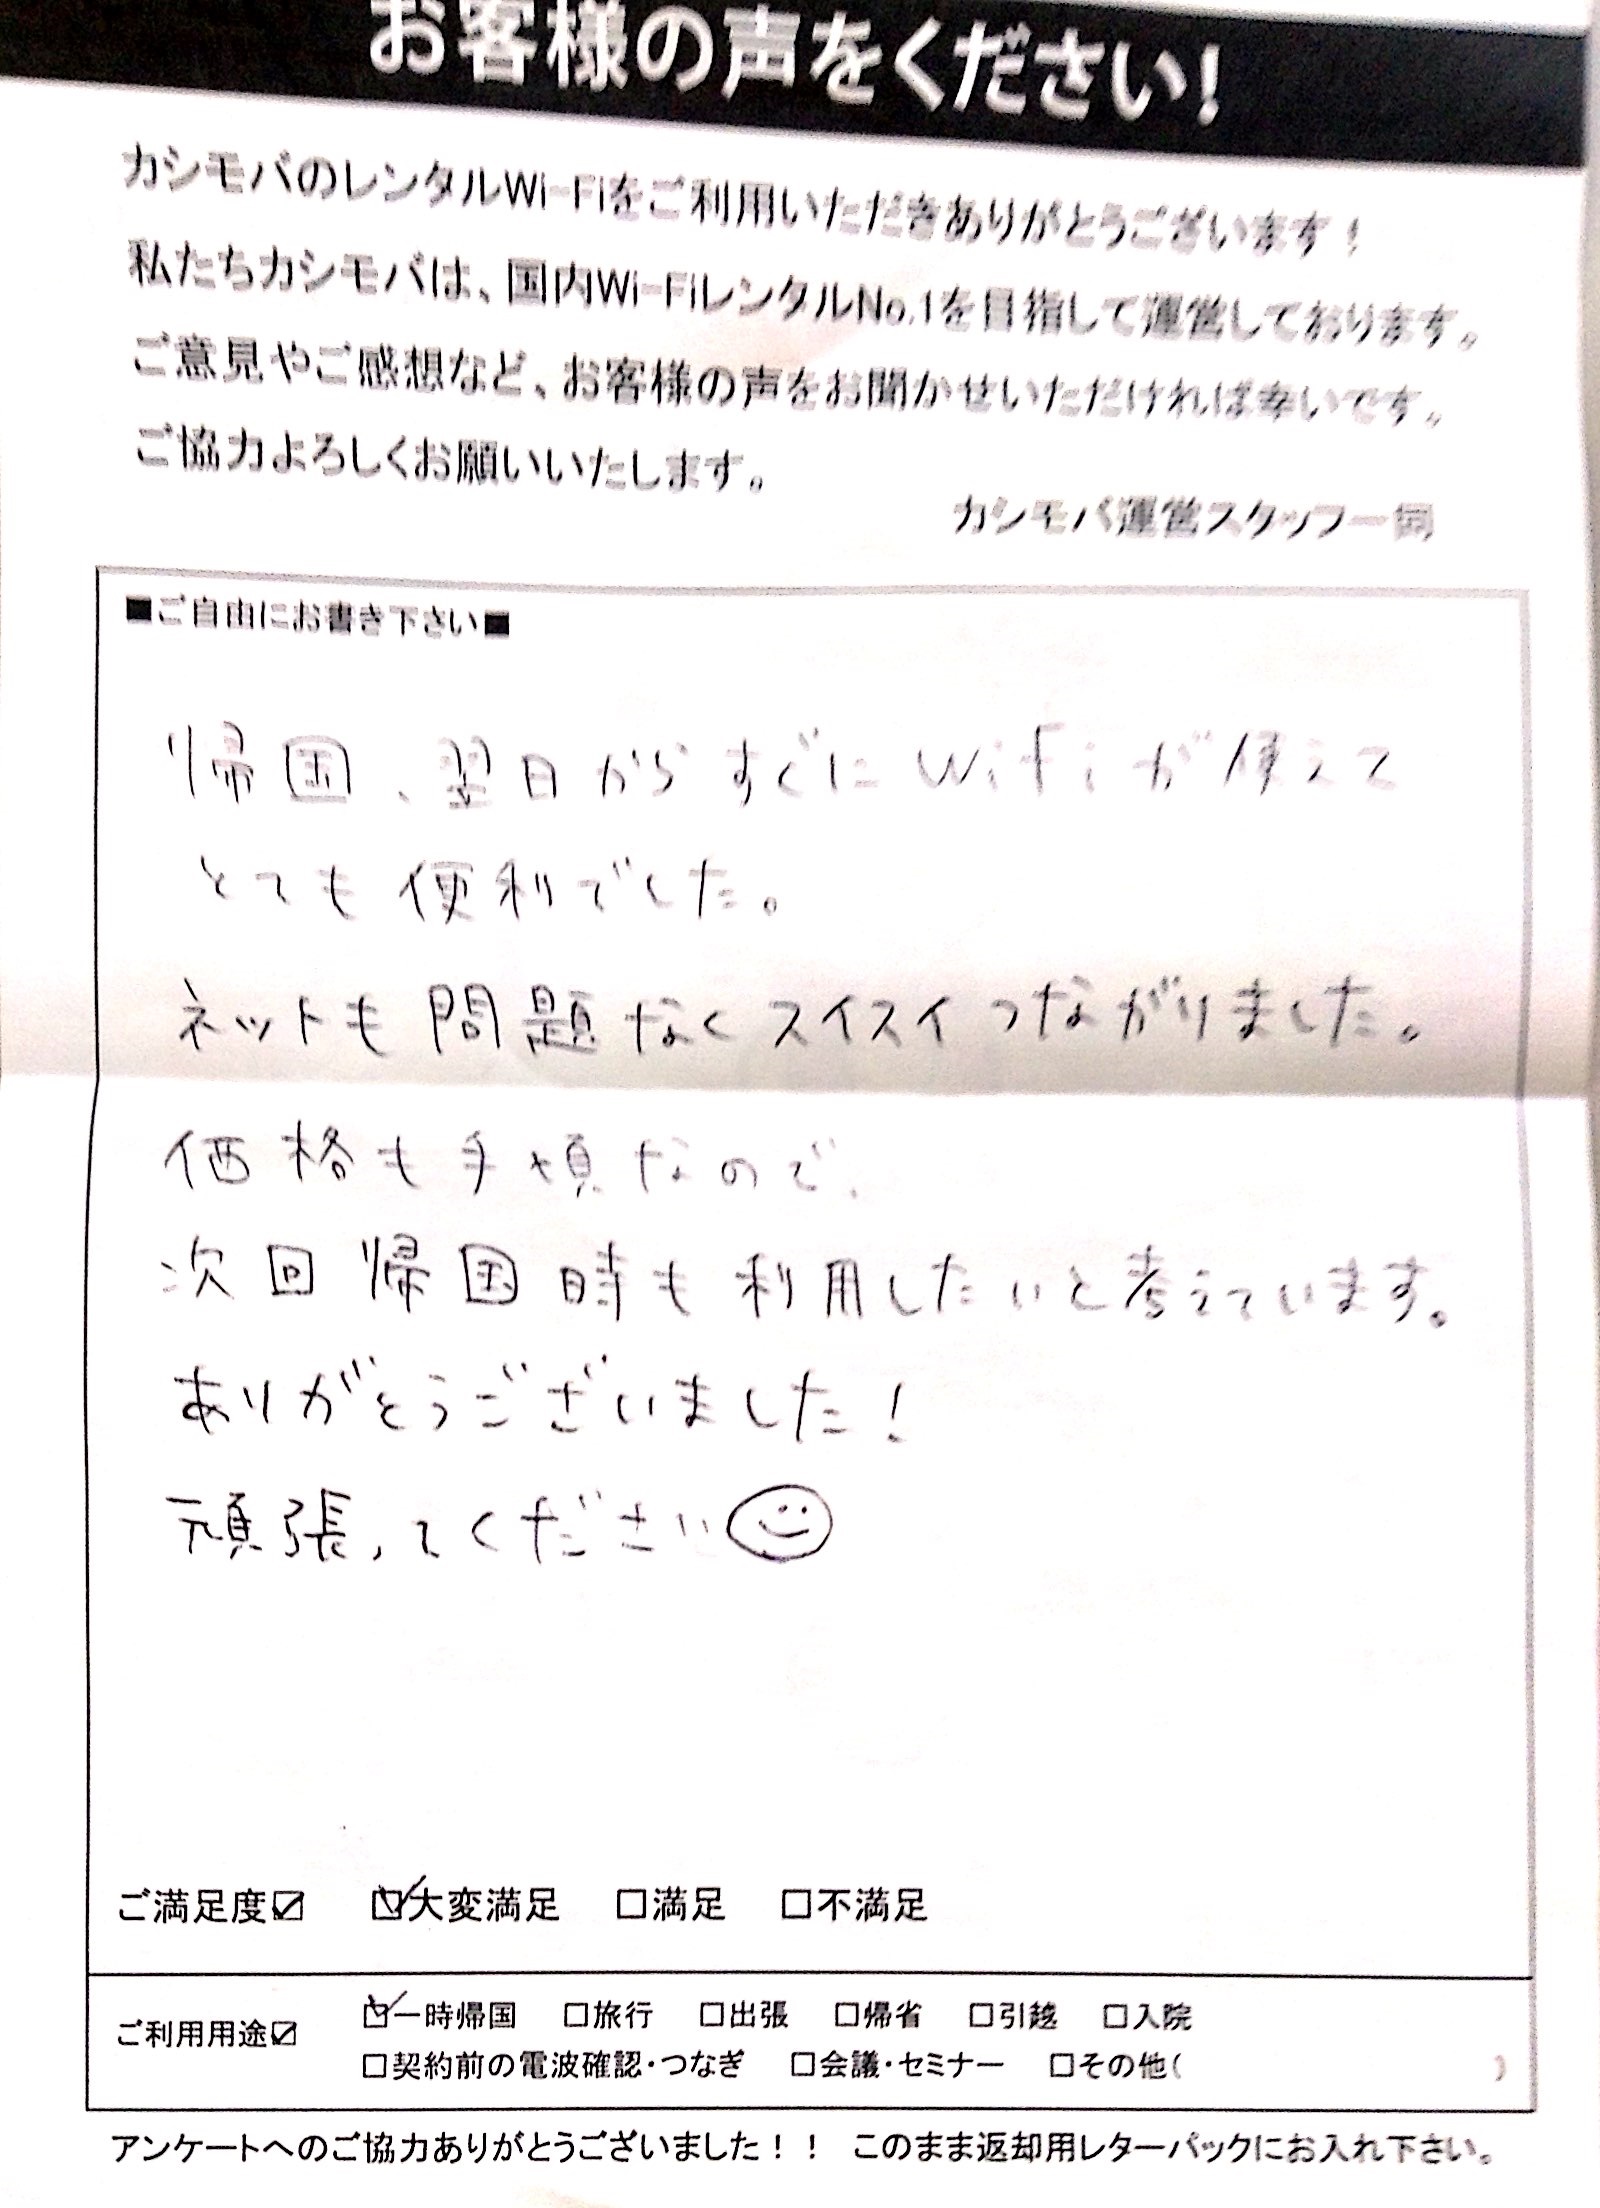 お客様の声をください!
カシモバのレンタルWi-Fiをご利用いただきありがとうございます！
私たちカシモバは、国内Wi-FiレンタルNo.1を目指して運営しております。
ご意見やご感想など、お客様の声をお聞かせいただければ幸いです。
ご協力よろしくお願いいたします。
カシモバ運営スタッフ一同
■ご自由にお書き下さい■
帰国、翌日からすぐにWiFiが使えて
とても便利でした。
ネットも問題なくスイスイつながりました。
価格も手頃なので、
次回帰国時も利用したいと考えています。
ありがとうございました！
頑張ってください
ご満足度☑ ☑大変満足 □満足 □不満足
ご利用用途☑ ☑一時帰国 □旅行 □出張 □帰省 □引越 □入院
□契約前の電波確認・つなぎ □会議・セミナー □その他( )
アンケートへのご協力ありがとうございました！！ このまま返却用レターパックにお入れ下さい。